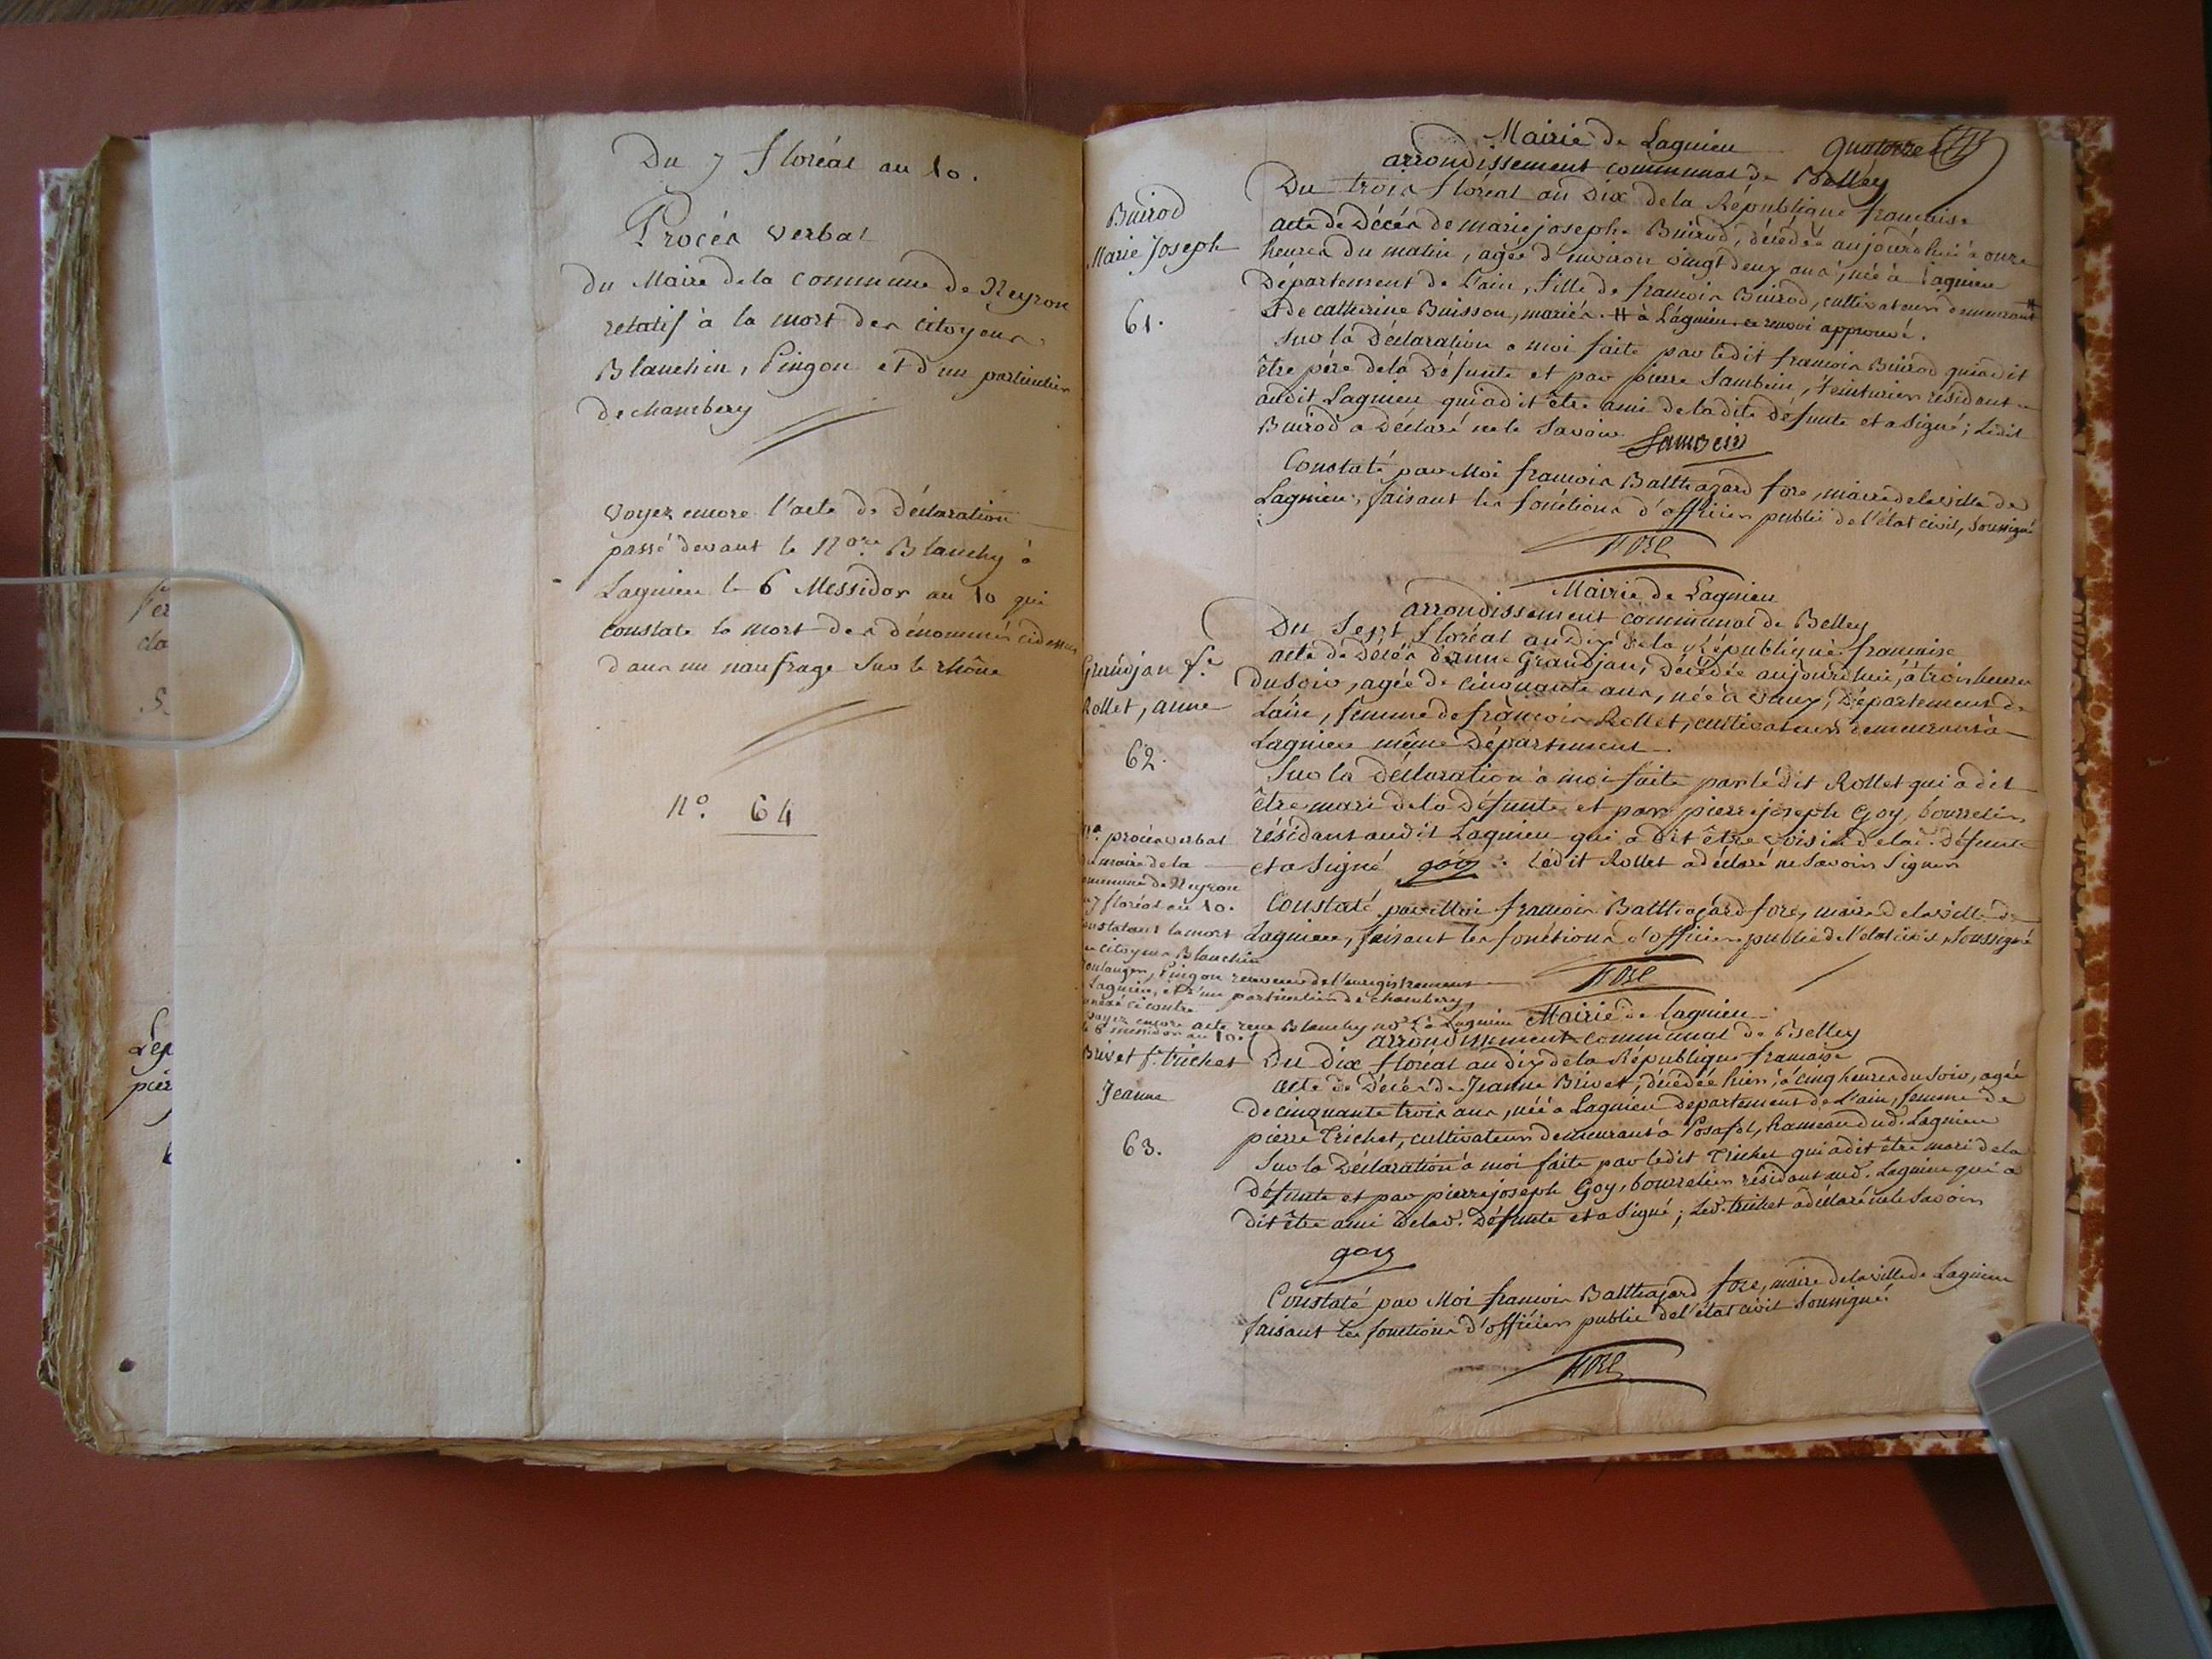 Du 7 floréal an 10.
Procés verbal
du Maire de la commune de Neyron
relatif à la mort des citoyens
Blanchin, Pingon et d'un particulier
de chambery
voyez encore l'acte de déclaration
passé devant le Nore. Blanchy à
Lagnieu le 6 Messidor an 10 qui
constate la mort des dénommés cidessus
dans un naufrage sur le rhône
n.o 64
Mairie de Lagnieu
quatorze
arrondissement communal de Belley
Du trois floréal an Dix de la République francaise
Buirod
Marie Joseph
61.
acte de Décés de marie joseph Buirod, décédée aujourdhui à onze
heures du matin, agée d'environ vingt deux ans, née à Lagnieu
Département de l'ain, fille de francois Buirod, cultivateur demeurant #
et de catherine Buisson, mariés. # à Lagnieu ce renvoi approuvé.
Sur la Déclaration à moi faite par ledit francois Buirod qui a dit
être père de la Défunte et par pierre Sambein, teinturier résidant
audit Lagnieu qui a dit être ami de ladite défunte et a signé; ledit
Buirod a Déclaré ne le savoir. Sambein
Constaté par Moi francois Balthazard fore, maire de la ville de
Lagnieu, faisant les fonctions d'officier public de l'état civil, soussigné
fore
Mairie de Lagnieu
arrondissement communal de Belley
Du Sept floréal an Dix de la République francaise
Grandjan fe.
Rollet, anne
62.
acte de décés d'anne Grandjan, décédée aujourdhui, à trois heures
du soir, agée de cinquante ans, née à vaux, Département de
Lain, femme de francois Rollet, cultivateur demeurant à
Lagnieu même Département.
Sur la Déclaration à moi faite par ledit Rollet qui a dit
être mari de la Défunte et par pierre joseph Goy, bourrelier
résidant audit Lagnieu qui a dit être voisin de la d. Défunte
et a signé goy. ledit Rollet a déclaré ne savoir signer
Constaté par Moi francois Balthazard fore, maire de la ville de
Lagnieu, faisant les fonctions d'officier public de l'état civil, soussigné
fore
procés verbal
maire de la
commune de Neyron
7 floréal an 10.
constatant la mort
citoyens Blanchin
boulanger, Pingon receveur de l'enregistrement
Lagnieu, et d'un particulier de chambery,
annexé ci contre
voyez encore acte recu Blanchy nore. à Lagnieu
le 6 messidor an 10.
Mairie de Lagnieu
arrondissement communal de Belley
Brivet fe. trichet
Jeanne
63.
Du dix floréal an dix de la République francaise
acte de Décés de Jeanne Brivet, décédée hier, à cinq heures du soir, agée
de cinquante trois ans, née à Lagnieu département de L'ain, femme de
pierre Trichet, cultivateur demeurant à Posafol, hameau dud. Lagnieu
Sur la Déclaration à moi faite par ledit Trichet qui a dit être mari de la
défunte et par pierre joseph Goy, bourrelier résidant aud. Lagnieu qui a
dit être ami de la d. Défunte et a signé; led. trichet a déclaré ne le savoir
goy
Constaté par Moi francois Balthazard fore, maire de la ville de Lagnieu
faisant les fonctions d'officier public de l'état civil soussigné.
fore